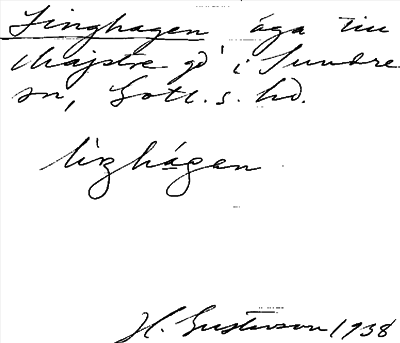 Linghagen äga till
Majstre gd i Sundre
sn, Gotl. s. hd.
lizhágen
H. Gustavson 1938